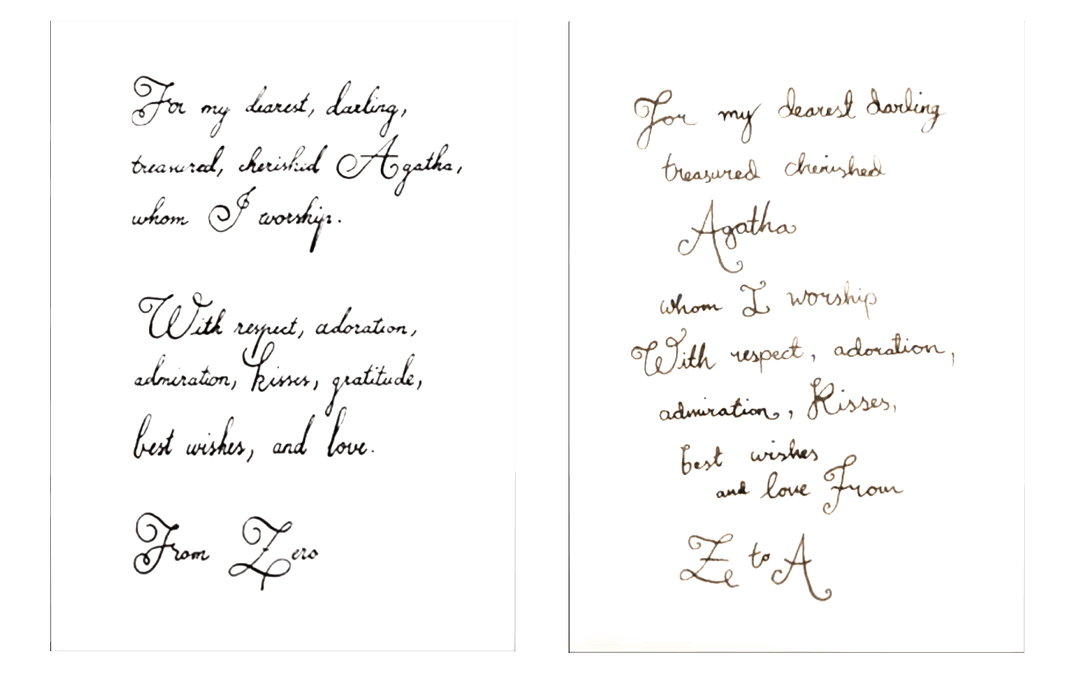 For my dearest, darling,
treasured, cherished Agatha,
whom I worship.
With respect, adoration,
admiration, kisses, gratitude,
best wishes, and love.
From Zero
For my dearest darling
treasured cherished
Agatha
whom I worship
With respect, adoration,
admiration, Kisses,
best wishes
and love From
Z to A